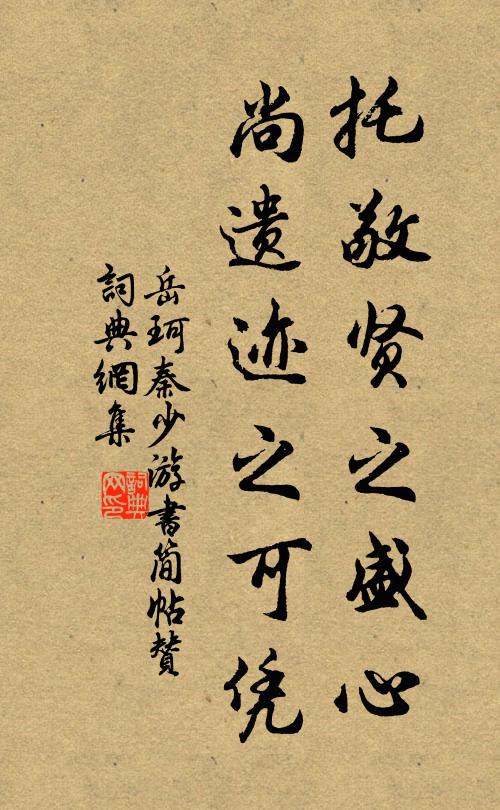 托敬贤之盛心
尚遗迹之可凭
岳珂秦少游书简帖赞
詞典網集
詞典
网印